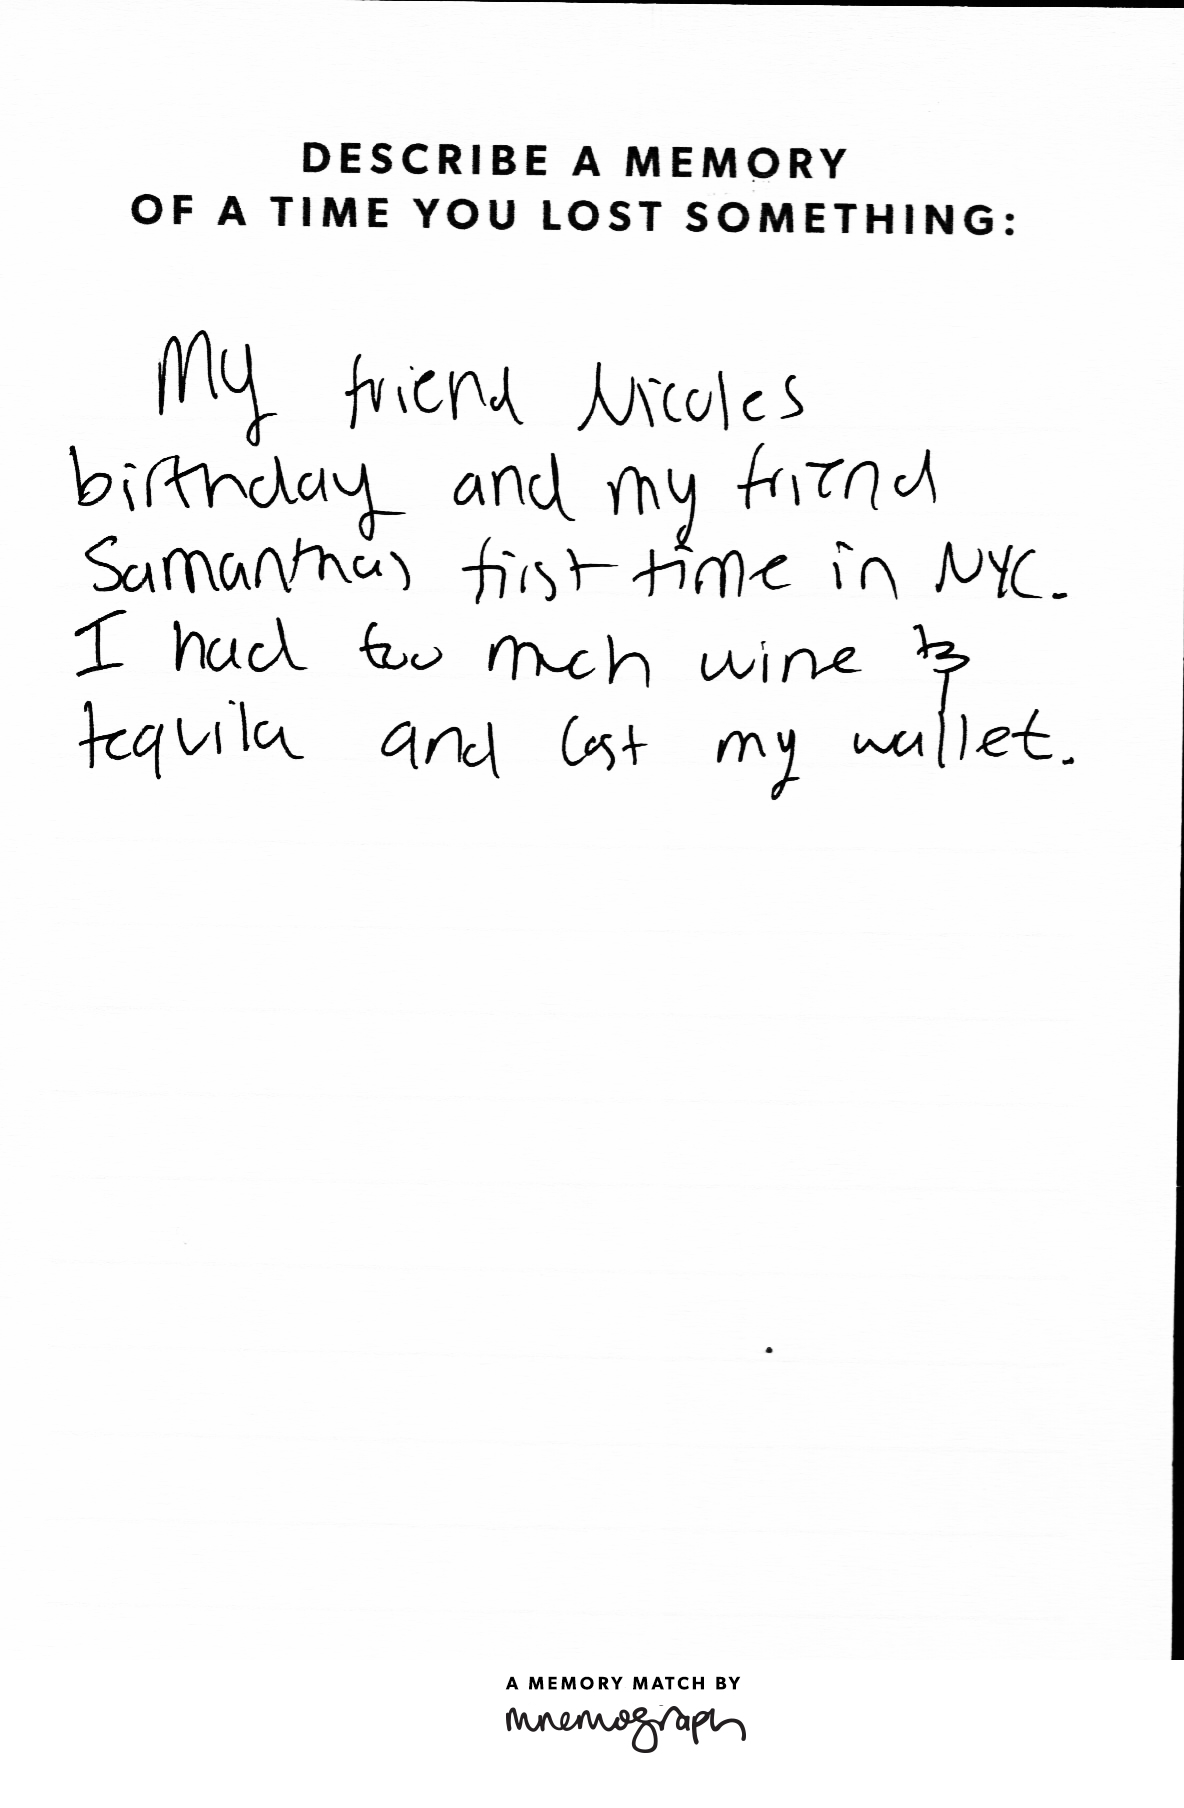 DESCRIBE A MEMORY
OF A TIME YOU LOST SOMETHING:
My friend Nicoles
birthday and my friend
Samanthas first time in NYC.
I had too much wine &
tequila and lost my wallet.
A MEMORY MATCH BY
mnemograph